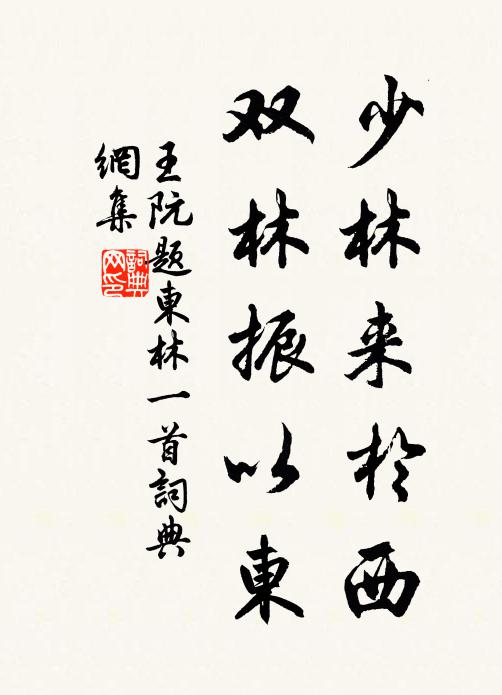 少林来於西
双林振以東
王阮题東林一首詞典
網集
詞典
网印